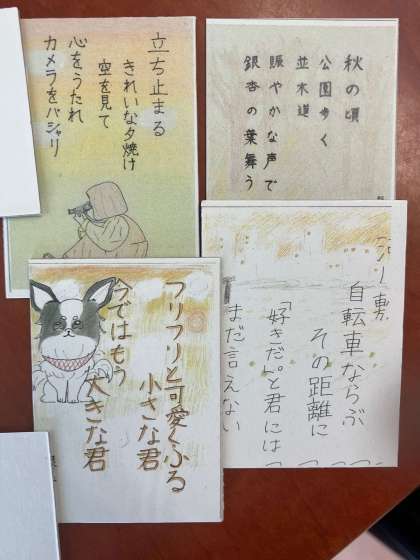 立ち止まる
きれいな夕焼け
空を見て
心をうたれ
カメラをパシャリ
秋の頃
公園歩く
並木道
賑やかな声で
銀杏の葉舞う
フリフリと可愛くふる
小さな君
今ではもう
大きな君
自転車ならぶ
その距離に
「好きだ」と君には
まだ言えない